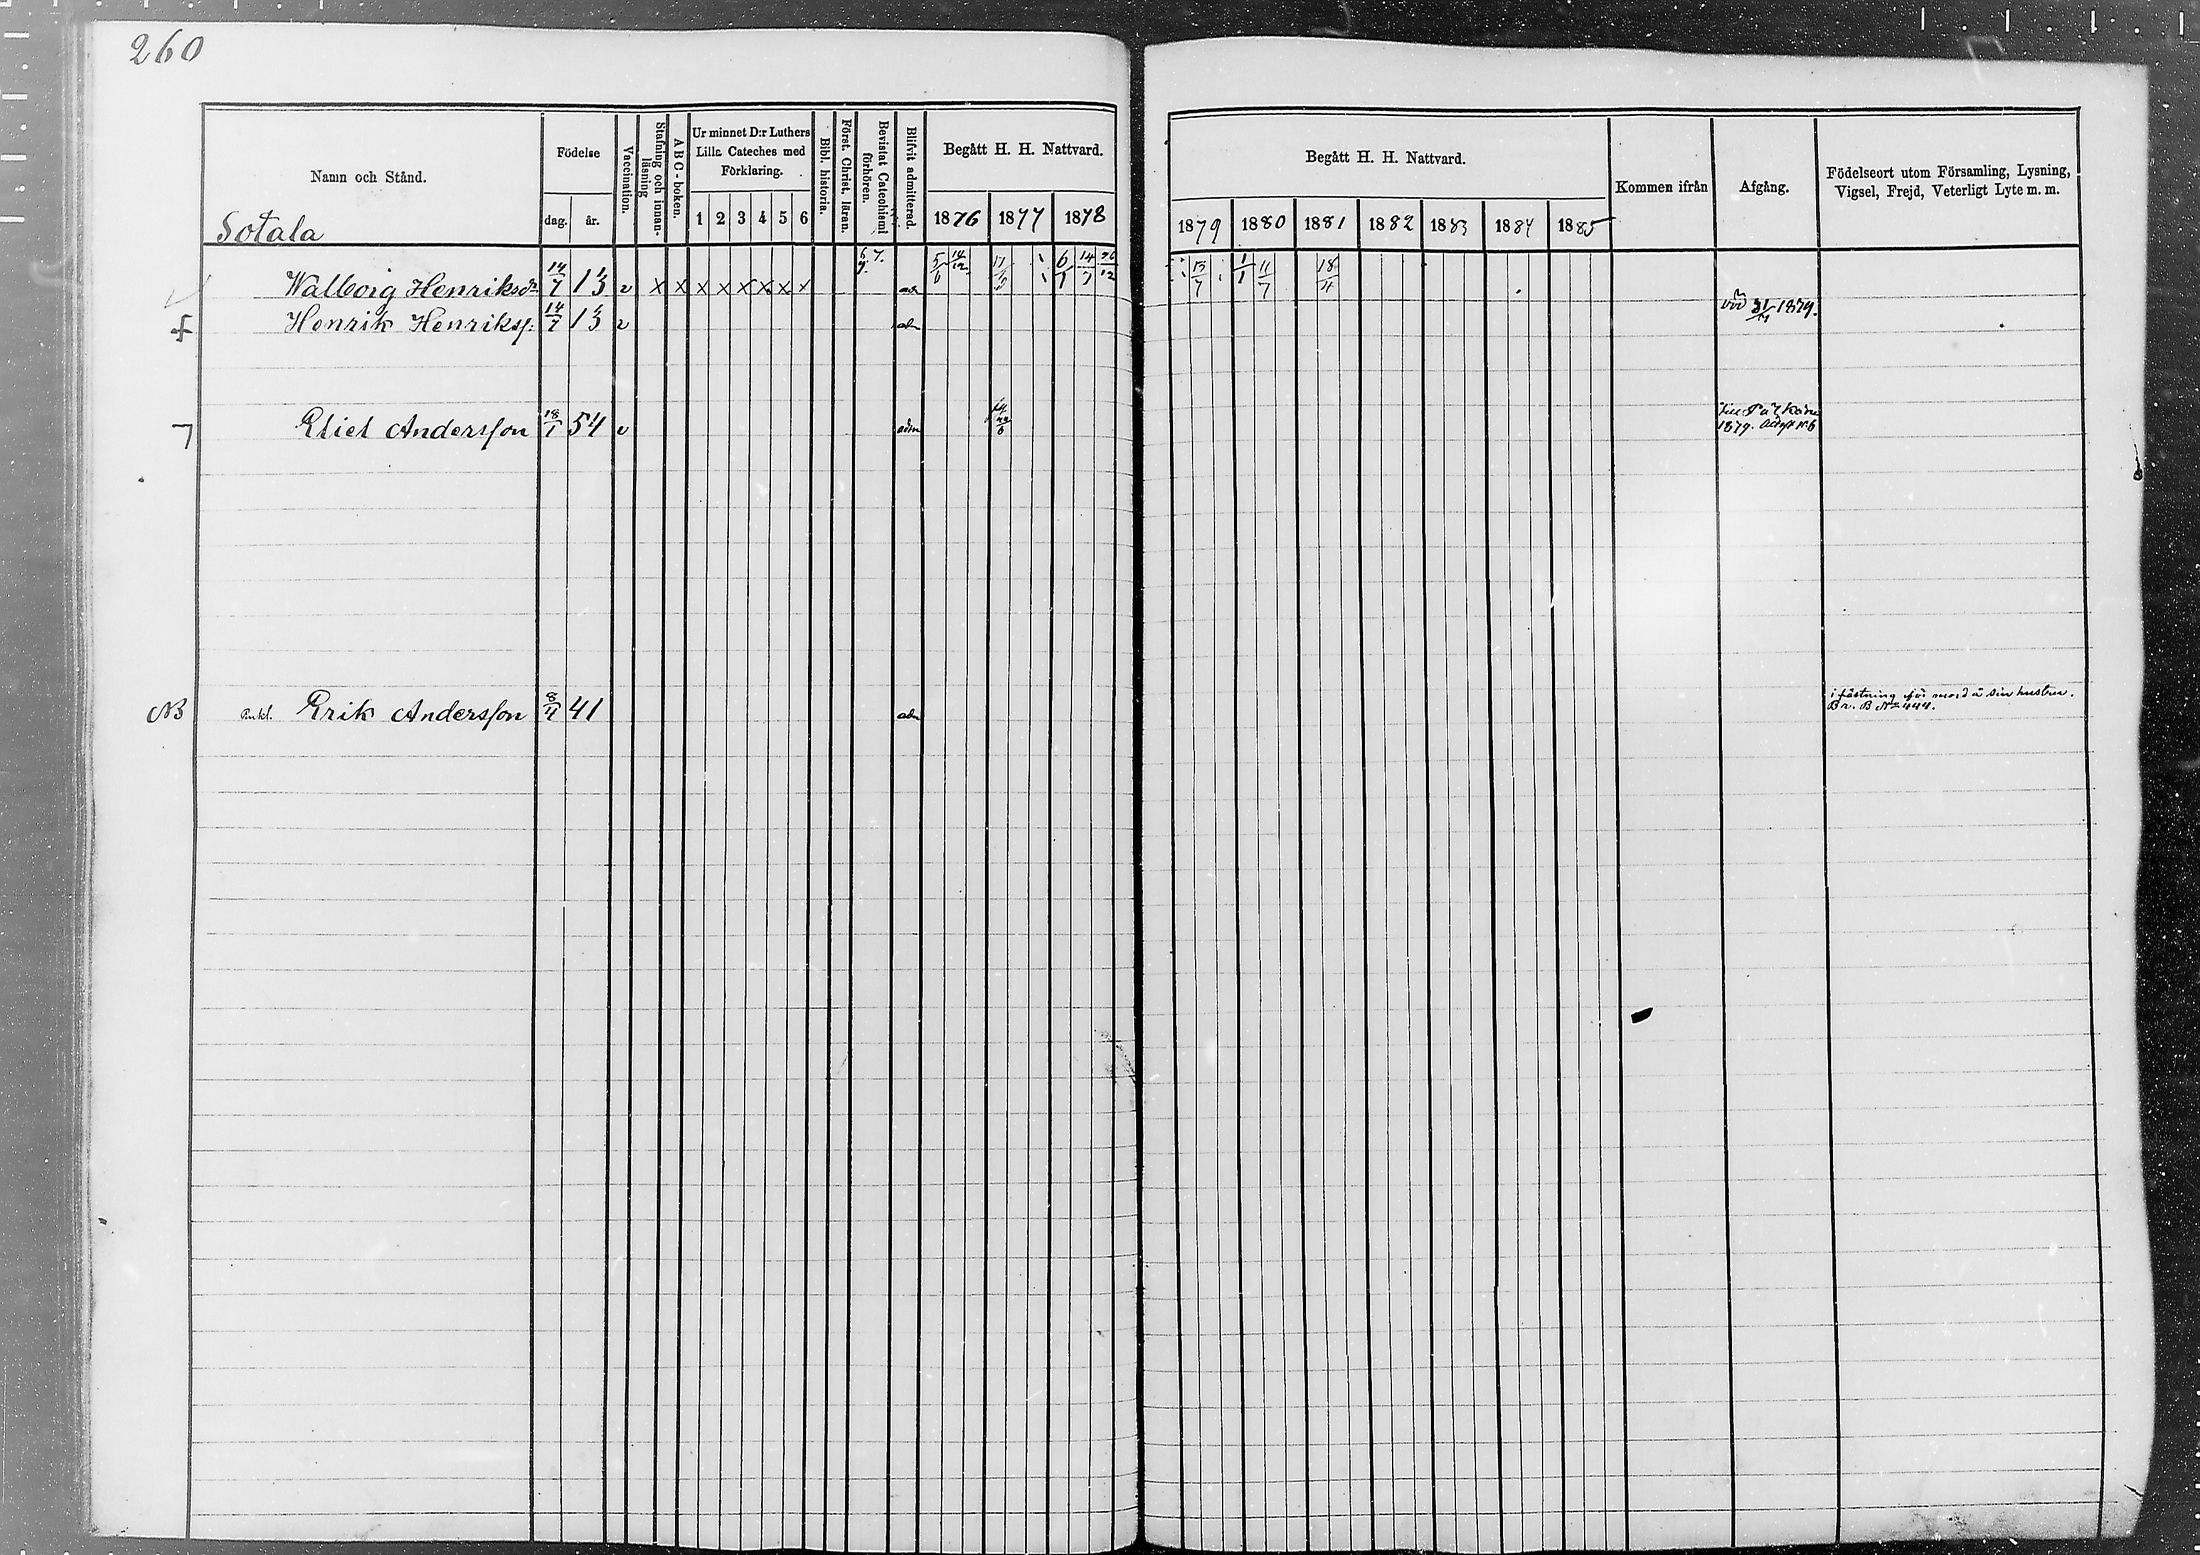 260
Namn och Stånd.
Sotala
Födelse
dag. år.
Vaccination.
Stafning och innan-
läsning
ABC-boken.
Ur minnet D:r Luthers
Lilla Cateches med
Förklaring.
1 2 3 4 5 6
Bibl. historia.
Först. Christ. läran.
Bevistat Catechismi
förhören.
Blifvit admitterad.
Begått H. H. Nattvard.
1876 1877 1878
Begått H. H. Nattvard.
1879 1880 1881 1882 1883 1884 1885
Kommen ifrån
Afgång.
Födelseort utom Församling, Lysning,
Vigsel, Frejd, Veterligt Lyte m. m.
Walborg Henriksdr 14/7 13 v x x x x x x x x 6. 7. 9. adm 5/6 14/12 17/6 6/1 14/7 26/12 15/7 1/1 11/7 18/4
Henrik Henrikss: 14/7 13 v adm död 21/4 1879.
Eliel Andersson 18/7 54 v adm till Pälkäne
1879. N:6
NB Erik Andersson 8/4 41 adm i fästning för mord å sin hustru.
Br. B No 444.